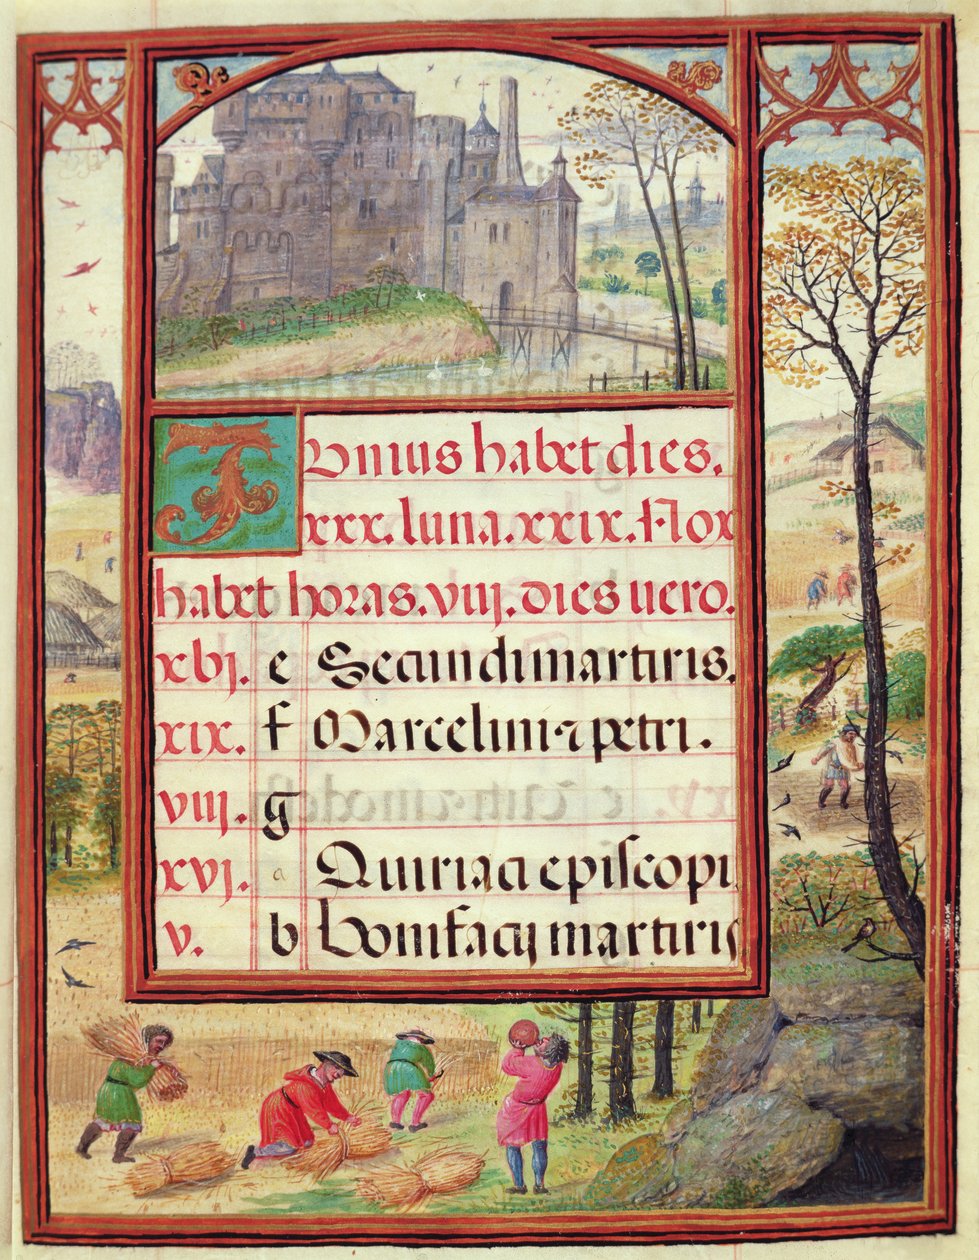 Junius habet dies.
xxx. luna. xxix. Nox
habet horas. viij. dies uero.
xvj. e Secundi martiris.
xix. f Marcelini ⁊ petri.
viij. g
xvj. a Quiriaci episcopi
v. b bonifacij martiris